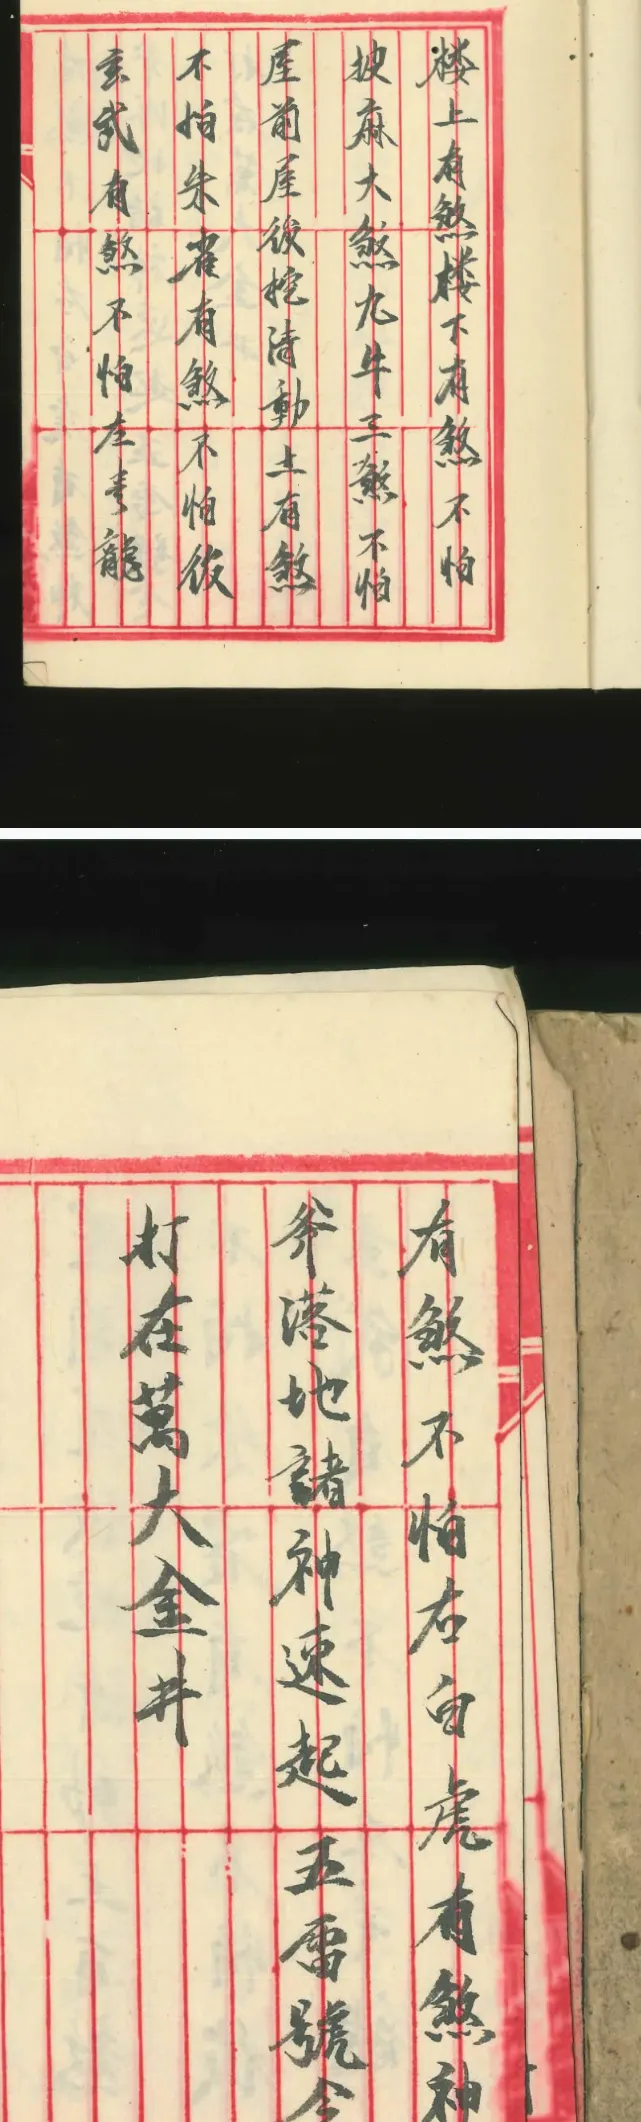 楼上有煞楼下有煞不怕
披麻大煞九牛三煞不怕
屋前屋後挖清動土有煞
不怕朱雀有煞不怕後
玄武有煞不怕左青龍
有煞不怕右白虎有煞神
斧落地諸神速起五雷號令
打在萬大金井